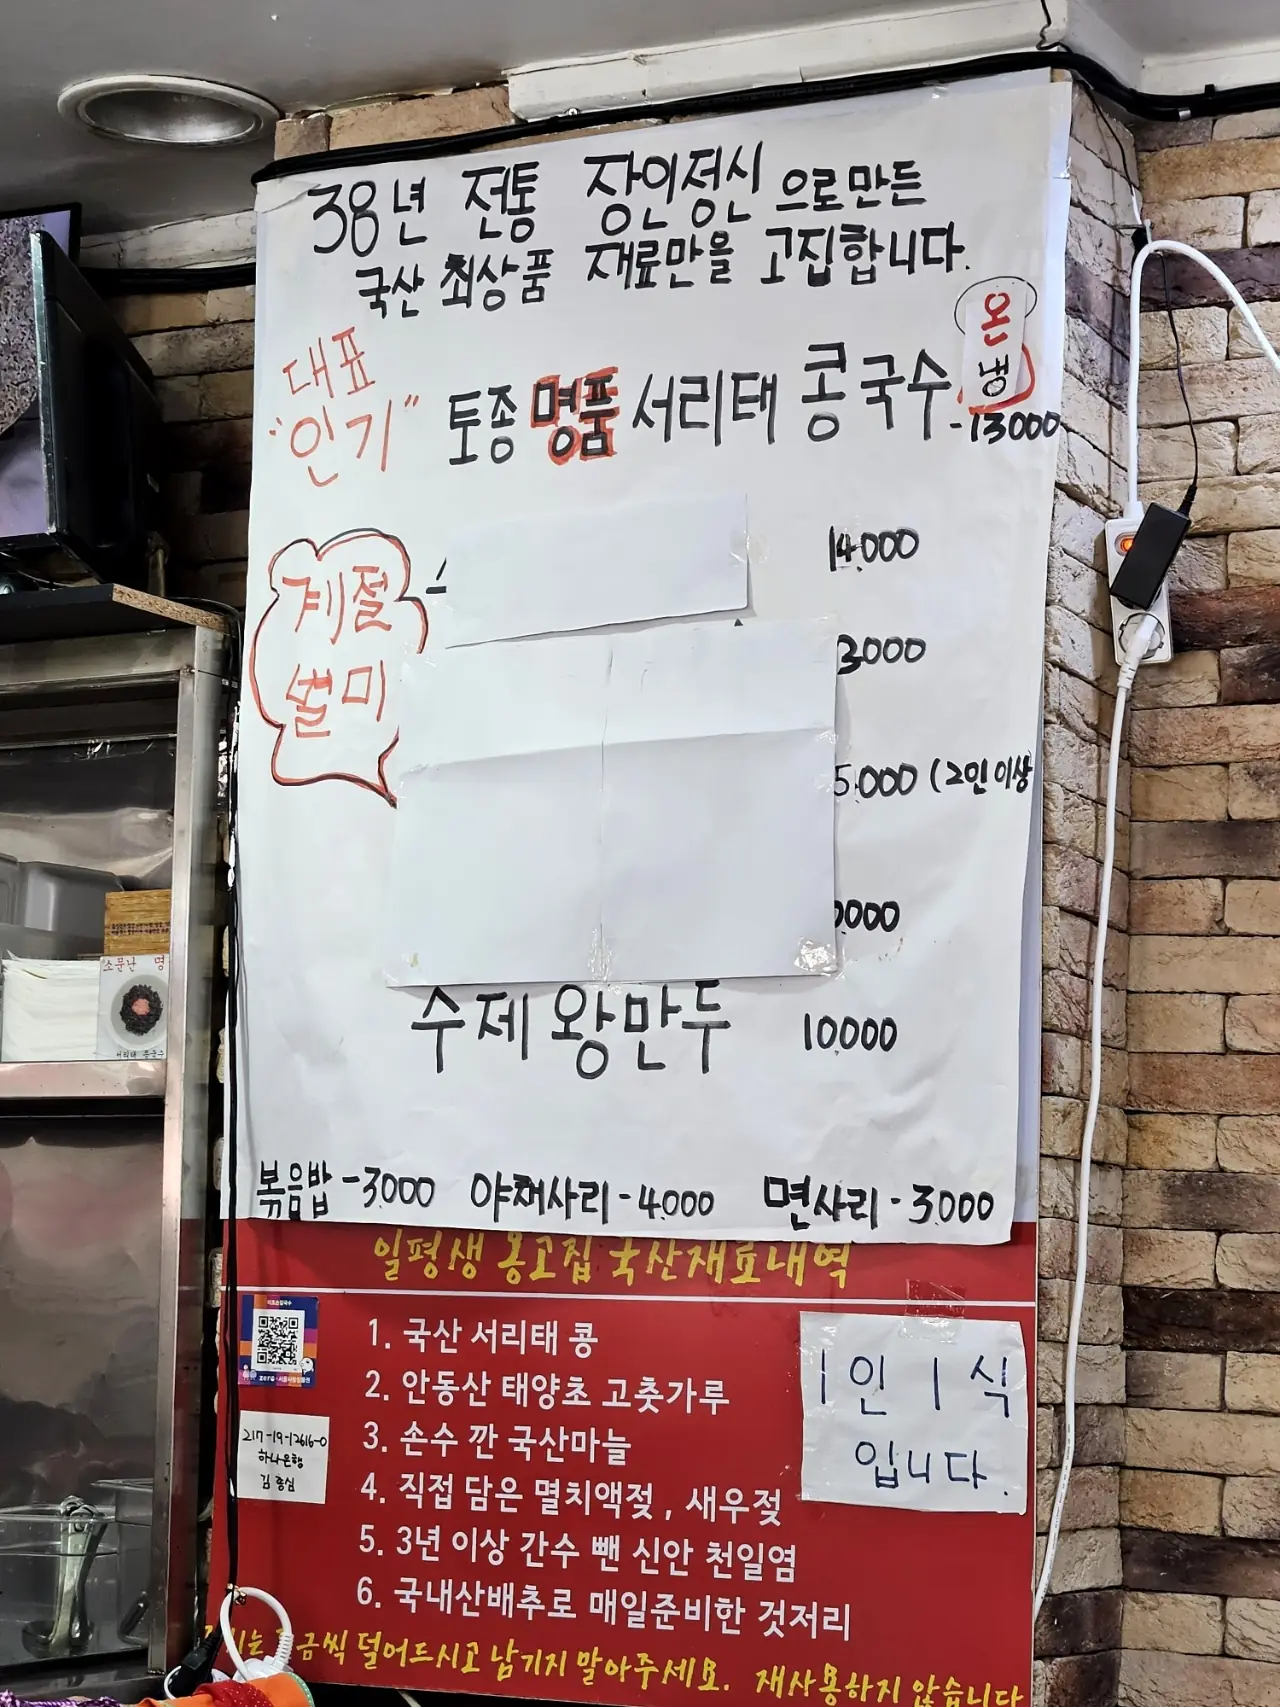 38년 전통 장인정신으로만든
국산 최상품 재료만을 고집합니다.
대표
"인기"
토종 명품 서리태 콩국수 -13000
온
냉
계절
별미
14.000
3000
5.000 (2인이상
000
수제 왕만두 10.000
볶음밥 -3.000 야채사리 -4.000 면사리 -3.000
일평생 옹고집 국산재료내역
1. 국산 서리태 콩
2. 안동산 태양초 고춧가루
3. 손수 깐 국산마늘
4. 직접 담은 멸치액젖, 새우젖
5. 3년 이상 간수 뺀 신안 천일염
6. 국내산배추로 매일준비한 것저리
1인 1식
입니다.
217-19-12616-0
하나은행
금씩 덜어드시고 남기지 말아주세요. 재사용하지 않습니다
소문난 명
서리태 콩국수